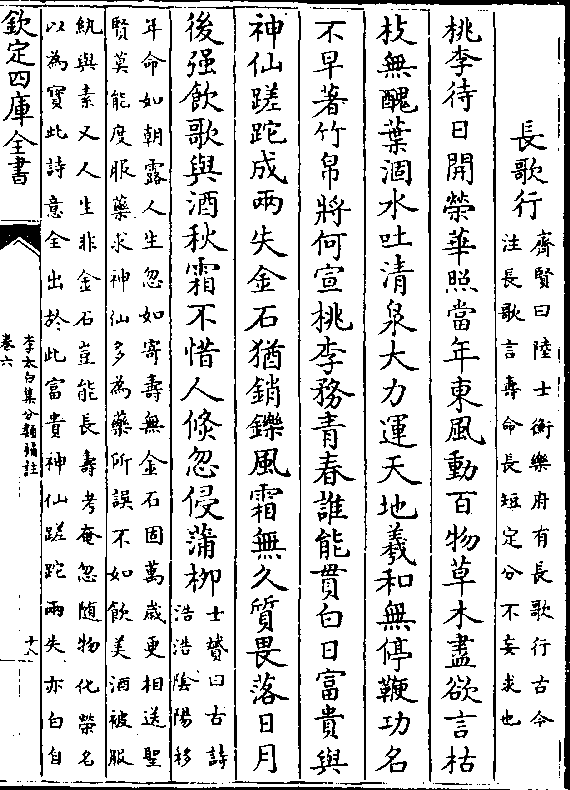 長歌行
齊賢曰陸士衡樂府有長歌行古今
注長歌言壽命長短定分不妄求也
桃李待日開榮華照當年東風動百物草木盡欲言枯
枝無醜葉涸水吐清泉大力運天地羲和無停鞭功名
不早著竹帛將何宣桃李務青春誰能貰白日富貴與
神仙蹉跎成兩失金石猶銷鑠風霜無久質畏落日月
後强飲歌與酒秋霜不惜人倐忽侵蒲柳
士贇曰古詩
浩浩陰陽移
年命如朝露人生忽如寄壽無金石固萬歲更相送聖
賢莫能度服藥求神仙多為藥所誤不如飲美酒被服
紈與素又人生非金石豈能長壽考奄忽随物化榮名
以為寶此詩意全出於此富貴神仙蹉跎兩失亦白自
欽定四庫全書
李太白集分類補註
卷六
十八